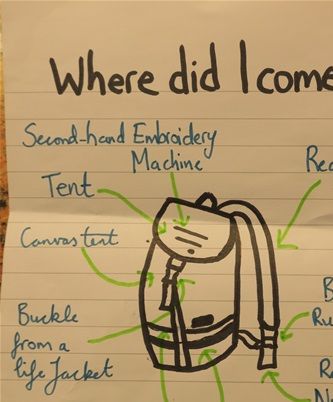 Where did I come
Second-hand Embroidery
Machine
Tent
Canvas tent
Buckle
from a
life Jacket